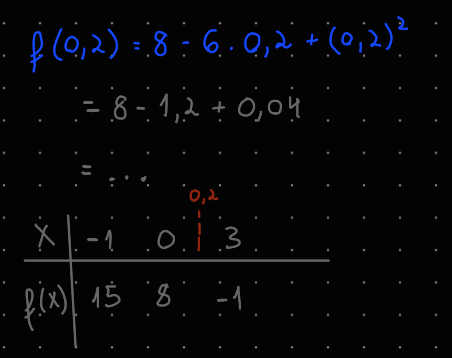 f(0,2) = 8 - 6 . 0,2 + (0,2)²
= 8 - 1,2 + 0,04
= ...
0,2
x -1 0 3
f(x) 15 8 -1